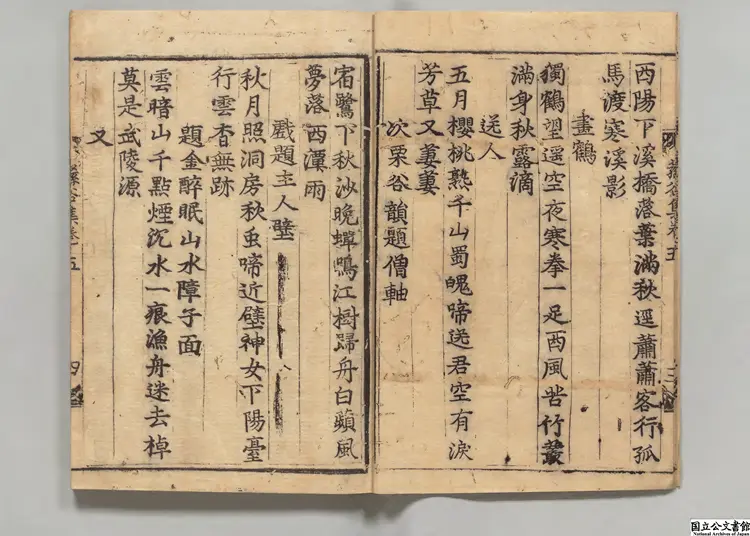 西陽下溪橋落葉滿秋逕蕭蕭客行孤
馬渡寒溪影
畫鶴
獨鶴望遥空夜寒拳一足西風苦竹叢
滿身秋露滴
送人
五月櫻桃熟千山蜀魄啼送君空有淚
芳草又萋萋
次栗谷韻題僧軸
宿鷺下秋沙晚蟬鳴江樹歸舟白蘋風
夢落西潭雨
戲題主人壁
秋月照洞房秋虫啼近壁神女下陽臺
行雲杳無跡
題金醉眠山水障子面
雲暗山千點煙沉水一痕漁舟迷去棹
莫是武陵源
又
國立公文書館
National Archives of Japan